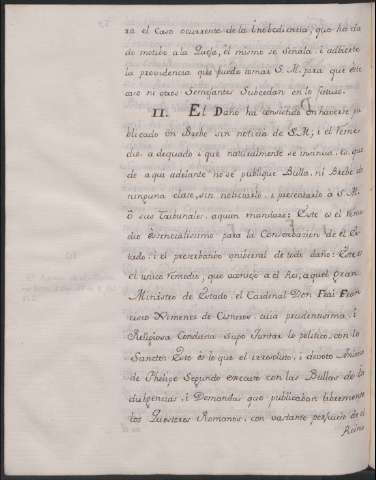 ra el Caso ocurrente de la Inobediencia, que ha da
do motivo a la Quexa, él mismo se señala, i advierte
la providencia que puede tomar S. M. para que este
caso ni otros Semejantes Subcedan en lo futuro.
II. El Daño ha consistido en haverse pu
blicado un Breve sin noticia de S. M; i el Reme
dio adequado i que naturalmente se insinua, es, que
de aqui adelante no se publique Bulla, ni Breve de
ninguna clase, sin noticiarlo, i presentarlo á S. M.
ó sus Tribunales, aquien mandare: Este es el Reme
dio essencialissimo para la Conservacion de el Es
tado, i el preservativo universal de todo daño: Este es
el unico remedio, que aconsejo a el Rei, aquel gran
Ministro de Estado, el Cardenal Don Frai Fran
cisco Ximenes de Cisneros, cuia prudentissima, i
Religiosa Conducta Supo Juntar lo politico, con lo
Santo: Esto es lo que el religioso, i devoto Animo
de Phelipe Segundo executó con las Bullas de In
dulgencias, i Demandas que publicaban libremente
los Questores Romanos, con vastante perjuicio de el
Reino